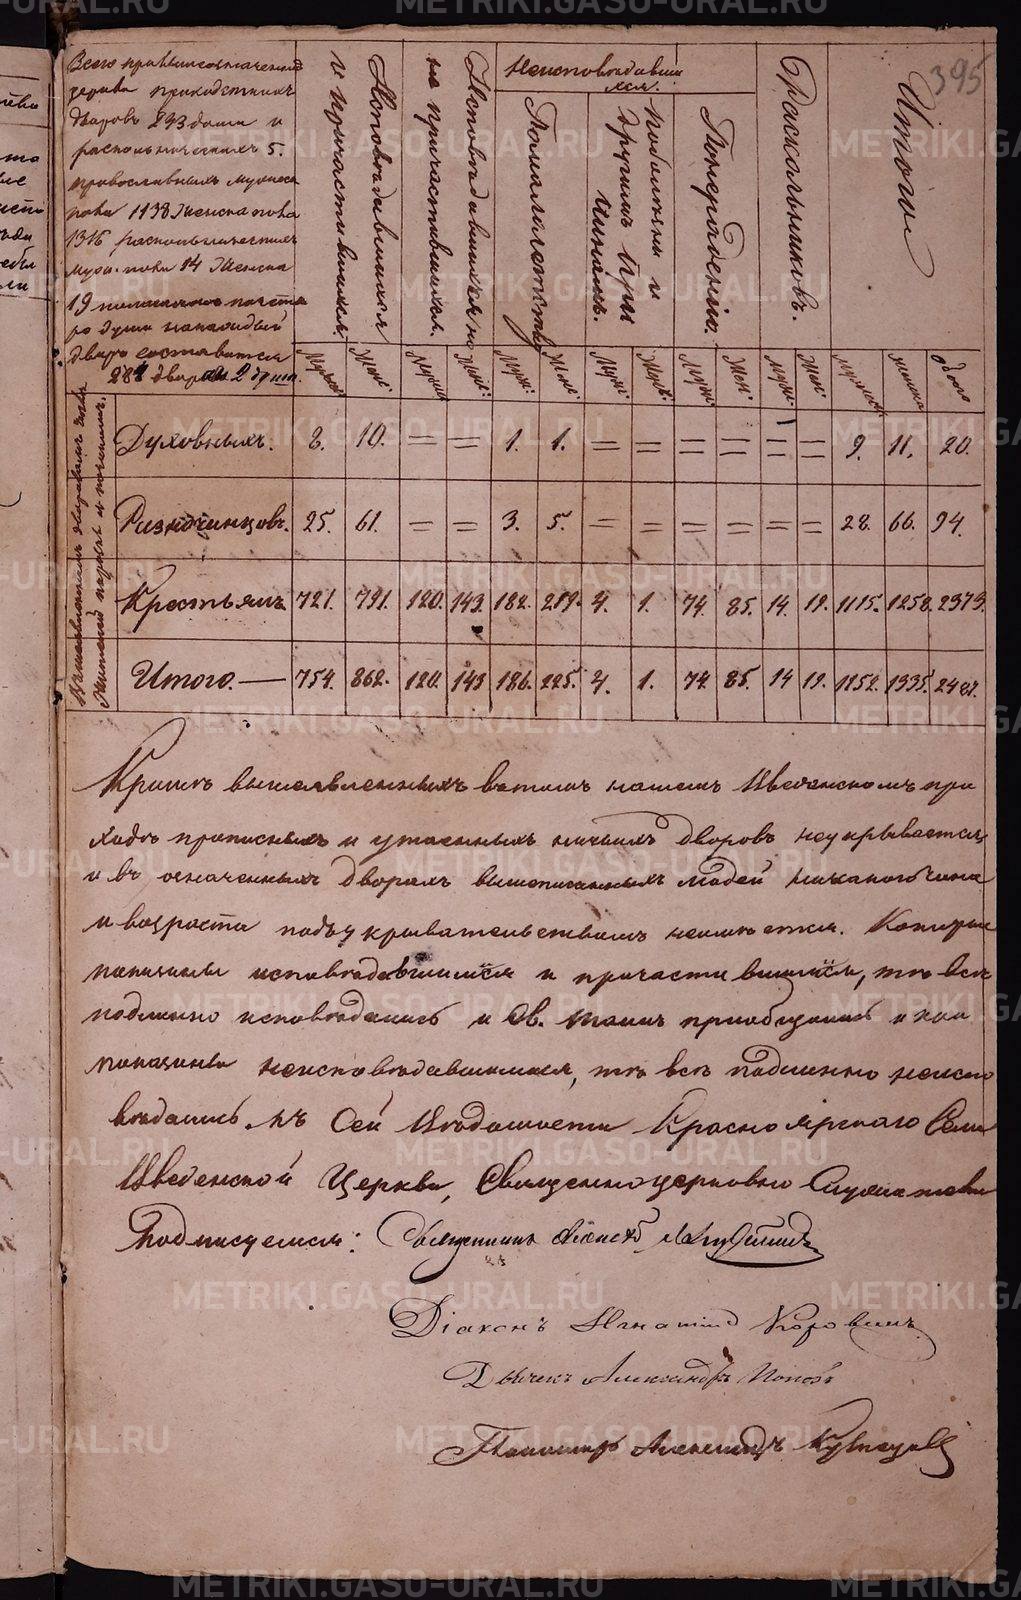 395
Всего при
церкви приходскихъ
дворовъ 293 дома и
раскольническихъ 5.
православныхъ мужеска
пола 1138 Женска пола
1316 раскольническихъ
муж. пола 14 Женска
19
душъ
дворъ составится
2 души.
Исповѣдавшихся
и причастившихся.
Исповѣдавшихся но
не причастившихся.
Неисповѣдавши
хся.
Помалолѣтству
и
другимъ при
чинамъ.
Раскольниковъ.
Итого
Муж: Жен: Муж: Жен: Муж: Жен: Муж: Жен: Муж: Жен: Муж: Жен: женска обоего
Духовныхъ. 8. 10. = = 1. 1. = = = = = = 9. 11. 20.
Разночинцовъ. 25. 61. = = 3. 5. = = = = = = 28. 66. 94.
Крестьянъ 721. 791. 120. 143. 182. 219. 4. 1. 74. 85. 14. 19. 1115. 1258. 2373.
Итого. — 754. 862. 120. 143 186. 225. 4. 1. 74. 85. 14 19. 1152. 1335.
Кромѣ вышеявленныхъ въ томъ нашемъ Введенскомъ при
ходѣ прописныхъ и утаенныхъ ничьихъ дворовъ неукрывается,
и въ означенныхъ дворахъ вышеписанныхъ людей никакого чина
и возраста подъ укрывательствомъ неимѣется. Которые
показаны исповѣдавшимися и причастившимися, тѣ всѣ
подлинно исповѣдались и Св. Таинъ приобщились и кои
показаны неисповѣдавшимися, тѣ всѣ подлинно неиспо
вѣдались. Къ Сей Вѣдомости Красноярскаго Села
Введенской Церкви, Священноцерковно Служители
Подписуемся: Священникъ
Діаконъ Игнатій Коровинъ
Дьячекъ Александръ Поповъ
Пономарь Александръ Кузнецовъ
METRIKI.GASO-URAL.RU